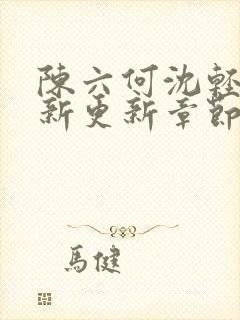 陳六何沈輕
新更新章節
馬健